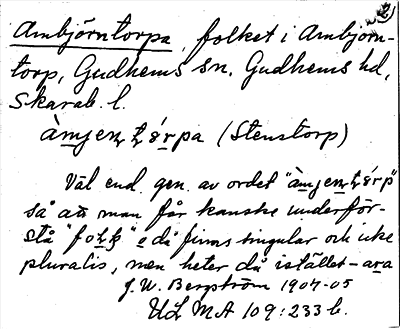 Ambjörntorpa, folket i Ambjörn-
torp, Gudhems sn. Gudhems hd,
Skarab. l.
àmjen ţórpa (Stenstorp)
Väl end. gen. av ordet "àmjenţórp"
så att man får kanske underför-
stå "folk" o då finns singular och icke
pluralis, men heter då istället -ara
J. W. Bergström 1904-05
ULMA 109:233 b.